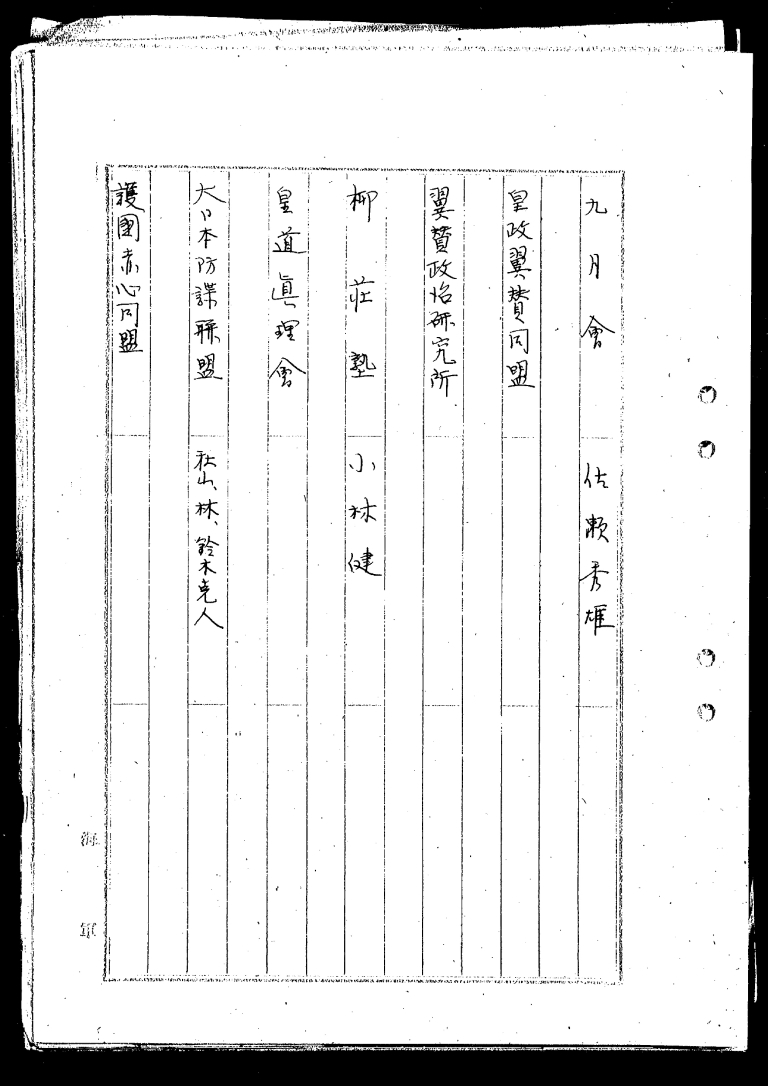 九月會 佐瀬秀雄
皇政翼賛同盟
翼賛政治研究所
柳荘塾 小林健
皇道眞理會
大日本防諜聯盟 秋山、林、鈴木克人
護國赤心同盟
海軍